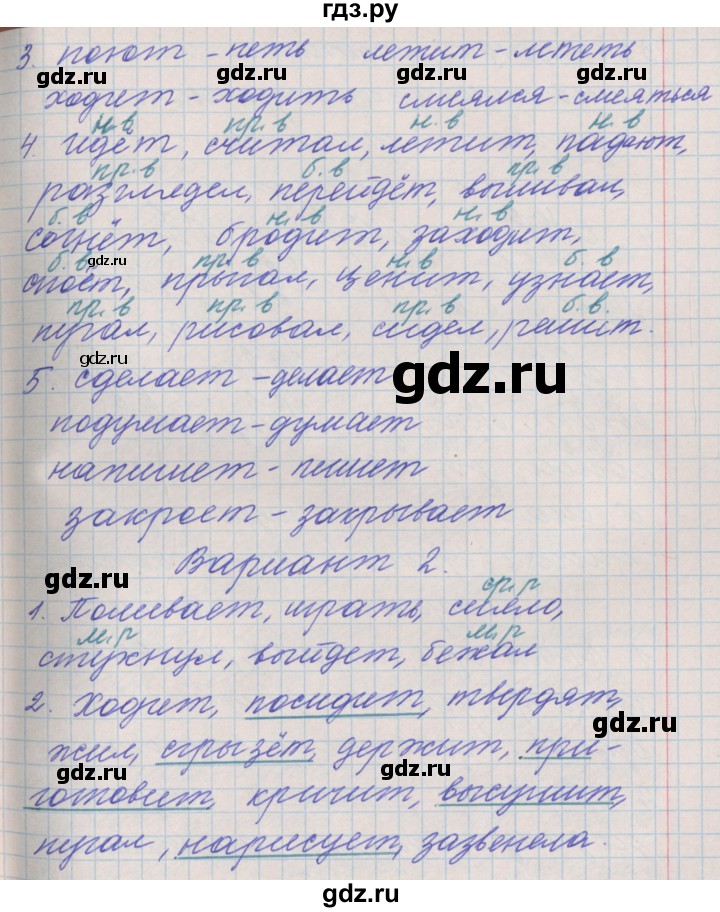 гдз.ру
3. поют - петь летит - лететь
gdz.ru gdz.ru gdz.ru
ходит - ходить смеялся - смеяться
н. в пр. в н. в н. в
4. Идёт, считал, летит, падают,
gdz.ru gdz.ru gdz.ru
пр. в б. в пр. в
разглядел, перейдёт, выливал,
б. в н. в н. в
согнёт, бродит, заходит,
gdz.ru gdz.ru gdz.ru
б. в пр. в н. в б. в
споёт, прыгал, ценит, узнает,
пр. в пр. в пр. в б. в.
пугал, рисовал, сидел, решит.
gdz.ru gdz.ru
5. сделает - делает
gdz.ru
подумает - думает
напишет - пишет
закроет - закрывает
Вариант 2.
gdz.ru gdz.ru
ср. р
1. Поливает, играть, сияло,
м. р м. р
стукнул, выйдет, бежал
gdz.ru gdz.ru
2. Ходит, посидит, твердят,
gdz.ru
жил, сгрызёт, держит, при-
gdz.ru gdz.ru
готовит, кричит, высушит,
пугал, нарисует, зазвенела.
gdz.ru gdz.ru
gdz.ru